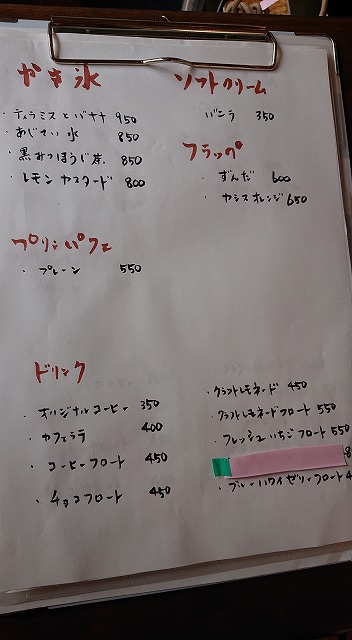 かき氷
・ティラミスとバナナ 950
・あじさい氷 850
・黒みつほうじ茶 850
・レモンカスタード 800
プリンパフェ
・プレーン 550
ドリンク
・オリジナルコーヒー 350
・カフェラテ 400
・コーヒーフロート 450
・チョコフロート 450
ソフトクリーム
バニラ 350
フラッペ
・ずんだ 600
・カシスオレンジ 650
・クラフトレモネード 450
・クラフトレモネードフロート 550
・フレッシュいちごフロート 550
8
・ブルーハワイゼリーフロート 4